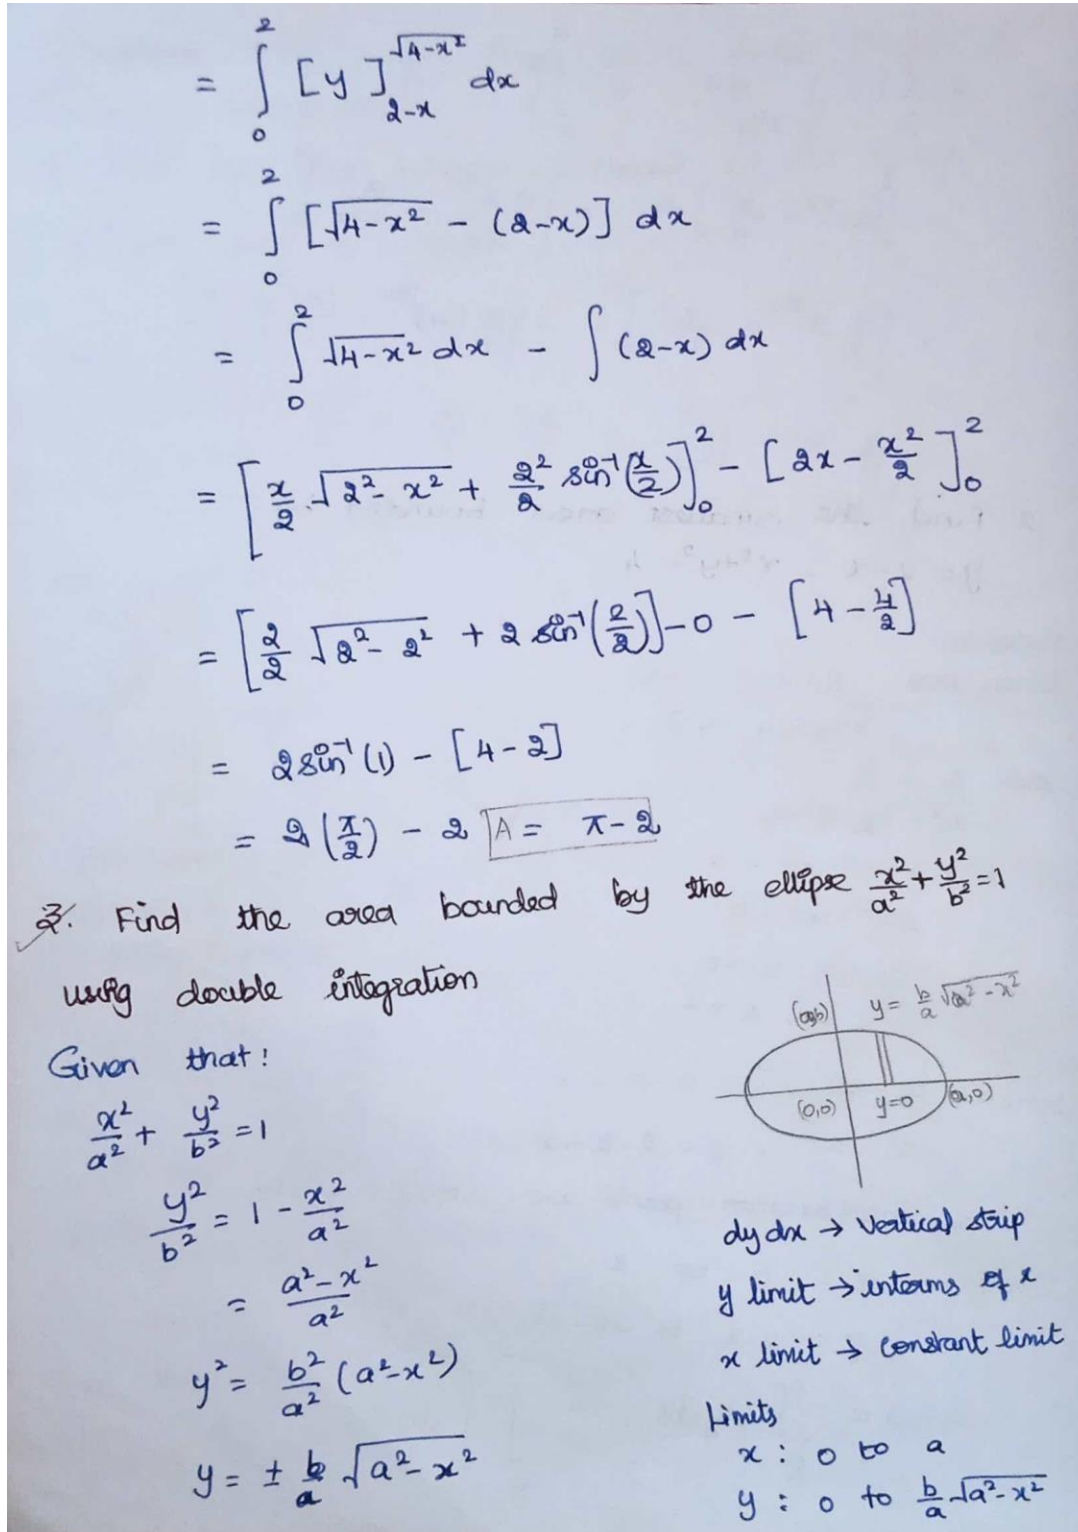 = ∫₀² [y]_{2-x}^{√(4-x²)} dx
= ∫₀² [√(4-x²) - (2-x)] dx
= ∫₀² √(4-x²) dx - ∫ (2-x) dx
= [x/2 √(2²-x²) + 2²/2 sin⁻¹(x/2)]₀² - [2x - x²/2]₀²
= [2/2 √(2²-2²) + 2 sin⁻¹(2/2)] - 0 - [4 - 4/2]
= 2 sin⁻¹(1) - [4-2]
= 2(π/2) - 2 A = π-2
3. Find the area bounded by the ellipse x²/a² + y²/b² = 1
using double integration
Given that:
x²/a² + y²/b² = 1
y²/b² = 1 - x²/a²
= (a²-x²)/a²
y² = b²/a² (a²-x²)
y = ± b/a √(a²-x²)
y = b/a √(a²-x²)
(0,0) y=0 (a,0)
dy dx → Vertical strip
y limit → interms of x
x limit → constant limit
Limits
x : 0 to a
y : 0 to b/a √(a²-x²)